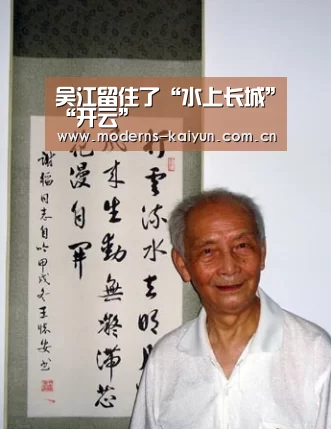 吴江留住了“水上长城”
“开云”
www.moderns-kaiyun.com.cn
雲流水去明月
来生動無凝滞蕊
花漫自開
谢韬同志自吟甲戌冬王怀安书